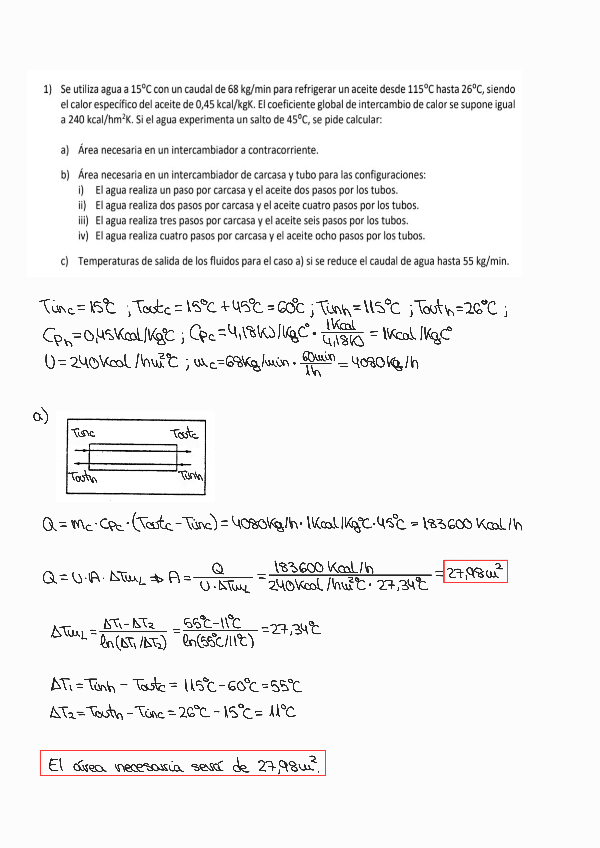 1) Se utiliza agua a 15ºC con un caudal de 68 kg/min para refrigerar un aceite desde 115ºC hasta 26ºC, siendo
el calor específico del aceite de 0,45 kcal/kgK. El coeficiente global de intercambio de calor se supone igual
a 240 kcal/hm²K. Si el agua experimenta un salto de 45ºC, se pide calcular:
a) Área necesaria en un intercambiador a contracorriente.
b) Área necesaria en un intercambiador de carcasa y tubo para las configuraciones:
i) El agua realiza un paso por carcasa y el aceite dos pasos por los tubos.
ii) El agua realiza dos pasos por carcasa y el aceite cuatro pasos por los tubos.
iii) El agua realiza tres pasos por carcasa y el aceite seis pasos por los tubos.
iv) El agua realiza cuatro pasos por carcasa y el aceite ocho pasos por los tubos.
c) Temperaturas de salida de los fluidos para el caso a) si se reduce el caudal de agua hasta 55 kg/min.
Tinc = 15ºC ; Toutc = 15ºC + 45ºC = 60ºC ; Tinh = 115ºC ; Touth = 26ºC ;
Cph = 0,45 Kcal/KgºC ; Cpc = 4,18 KJ/KgCº · 1Kcal/4,18KJ = 1Kcal/KgCº
U = 240 Kcal/hm²ºC ; mc = 68Kg/min · 60min/1h = 4080Kg/h
a)
Tinc Toutc
Touth Tinh
Q = mc · Cpc · (Toutc - Tinc) = 4080Kg/h · 1Kcal/KgºC · 45ºC = 183600 Kcal/h
Q = U · A · ΔTmL ⇒ A = Q/(U · ΔTmL) = 183600 Kcal/h / 240Kcal/hm²ºC · 27,34ºC = 27,98m²
ΔTmL = ΔT1 - ΔT2 / ln(ΔT1/ΔT2) = 55ºC - 11ºC / ln(55ºC/11ºC) = 27,34ºC
ΔT1 = Tinh - Toutc = 115ºC - 60ºC = 55ºC
ΔT2 = Touth - Tinc = 26ºC - 15ºC = 11ºC
El área necesaria será de 27,98m².